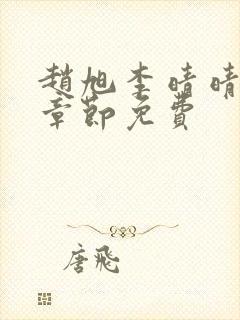 趙旭李晴晴
章節免費
唐飛